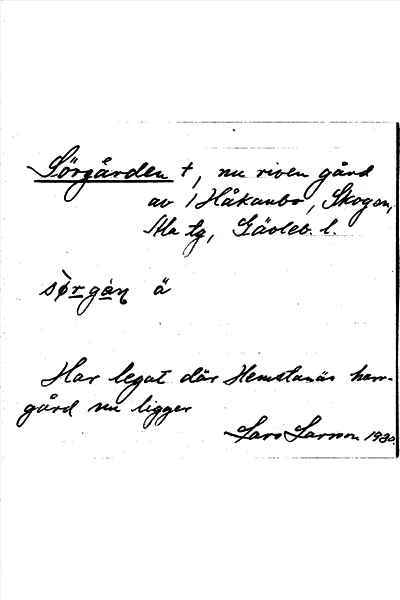 Sörgården †, nu riven gård
av / Håkanbo, Skogen,
Ala tg, Gävleb. l.
sö̀rgàn̥ ä
Har legat där Hemstanäs herr-
gård nu ligger
Lars Larsson 1930.